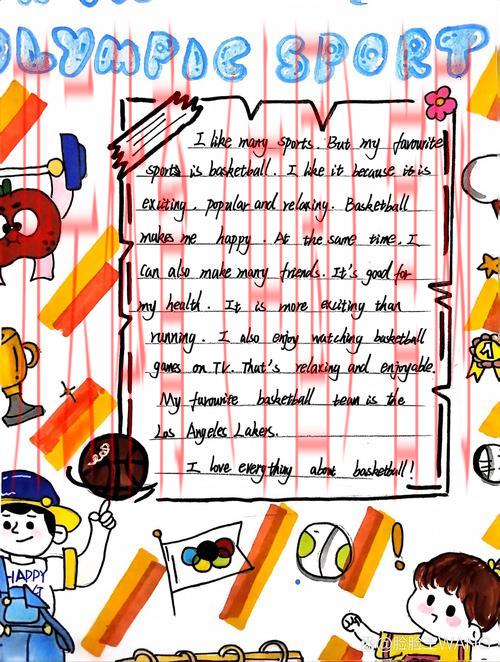 OLYMPIC SPORT
I like many sports. But my favourite
sports is basketball. I like it because it is
exciting, popular and relaxing. Basketball
makes me happy. At the same time, I
can also make many friends. It's good for
my health. It is more exciting than
running. I also enjoy watching basketball
games on TV. That's relaxing and enjoyable.
My favourite basketball team is the
Los Angeles Lakers.
I love everything about basketball!
1
HAPPY